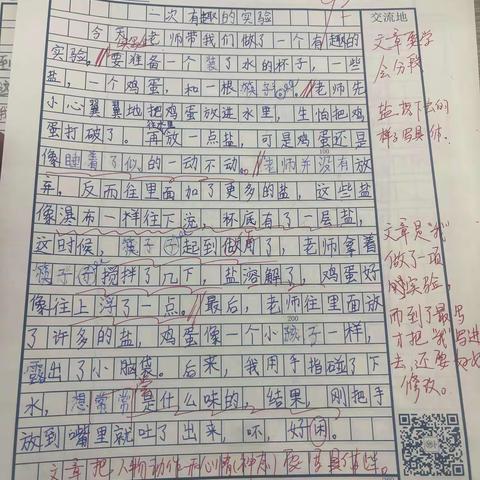 一次有趣的实验
交流地
今天老师带我们做了一个有趣的
实验。要准备一个装了水的杯子,一些
盐,一个鸡蛋,和一根筷子。老师先
小心翼翼地把鸡蛋放进水里,生怕把鸡
蛋打破了。再放一点盐,可是鸡蛋还是
像睡着了似的一动不动。老师并没有放
弃,反而往里面加了更多的盐,这些盐
像瀑布一样往下流,杯底有了一层盐,
这时候,筷子子起到做用了,老师拿着
筷子子搅拌了几下,盐溶解了,鸡蛋好
像往上浮了一点。最后,老师往里面放
了许多的盐,鸡蛋像一个小孩子一样,
露出了小脑袋。后来,我用手指碰了下
水,想常常是什么味的,结果,刚把手
放到嘴里就吐了出来,呸,好闲。
文章要学
会分段
盐投下去的
样子写具体。
文章是“我”
做了一项
实验,
而到了最后
才把“我”写进
去,还要好好
修改。
文章把人物动作和心情(神态)要写具体些。
100
200